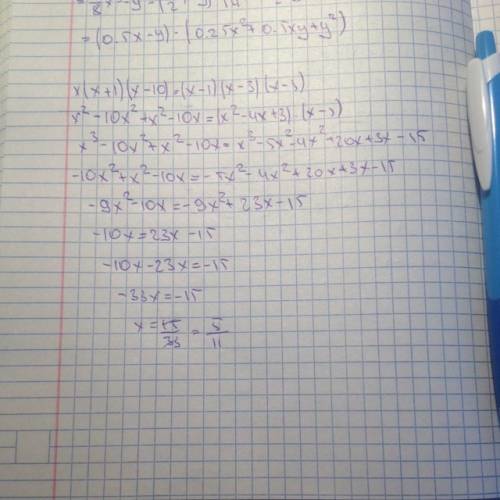 = (0.5x-y) - (0.25x²+0.5xy+y²)
x(x+1)(x-10)=(x-1)(x-3)(x-5)
x²-10x²+x²-10x=(x²-4x+3)·(x-5)
x³-10x²+x²-10x=x³-5x²-4x²+20x+3x-15
-10x²+x²-10x=-5x²-4x²+20x+3x-15
-9x²-10x=-9x²+23x-15
-10x=23x-15
-10x-23x=-15
-33x=-15
x=15/33=5/11